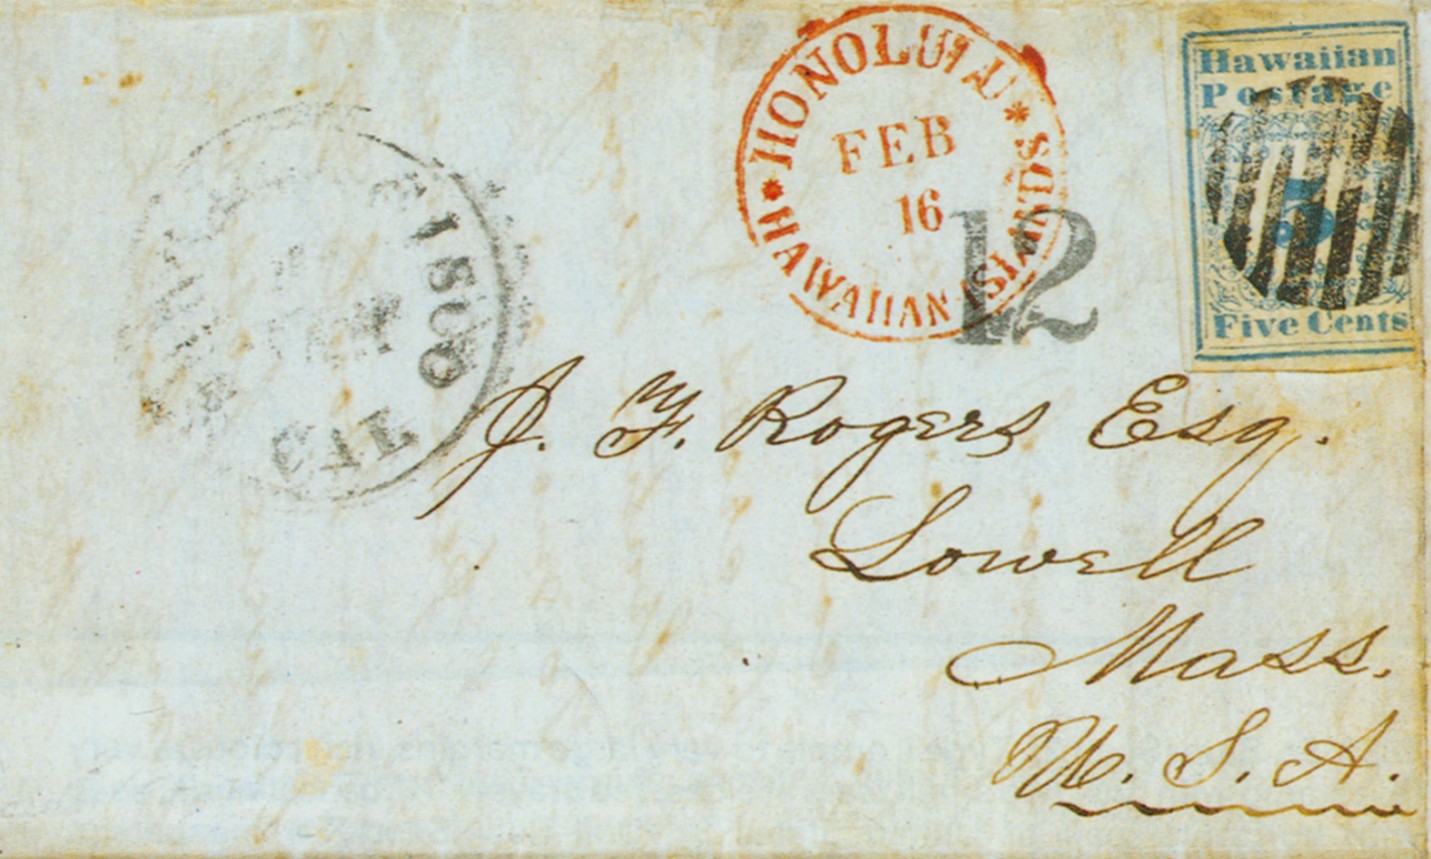 HONOLULU * HAWAIIAN ISLANDS *
FEB
16
12
Hawaiian
Postage
5
Five Cents
CISCO
CAL
J. F. Rogers Esq.
Lowell
Mass.
U. S. A.